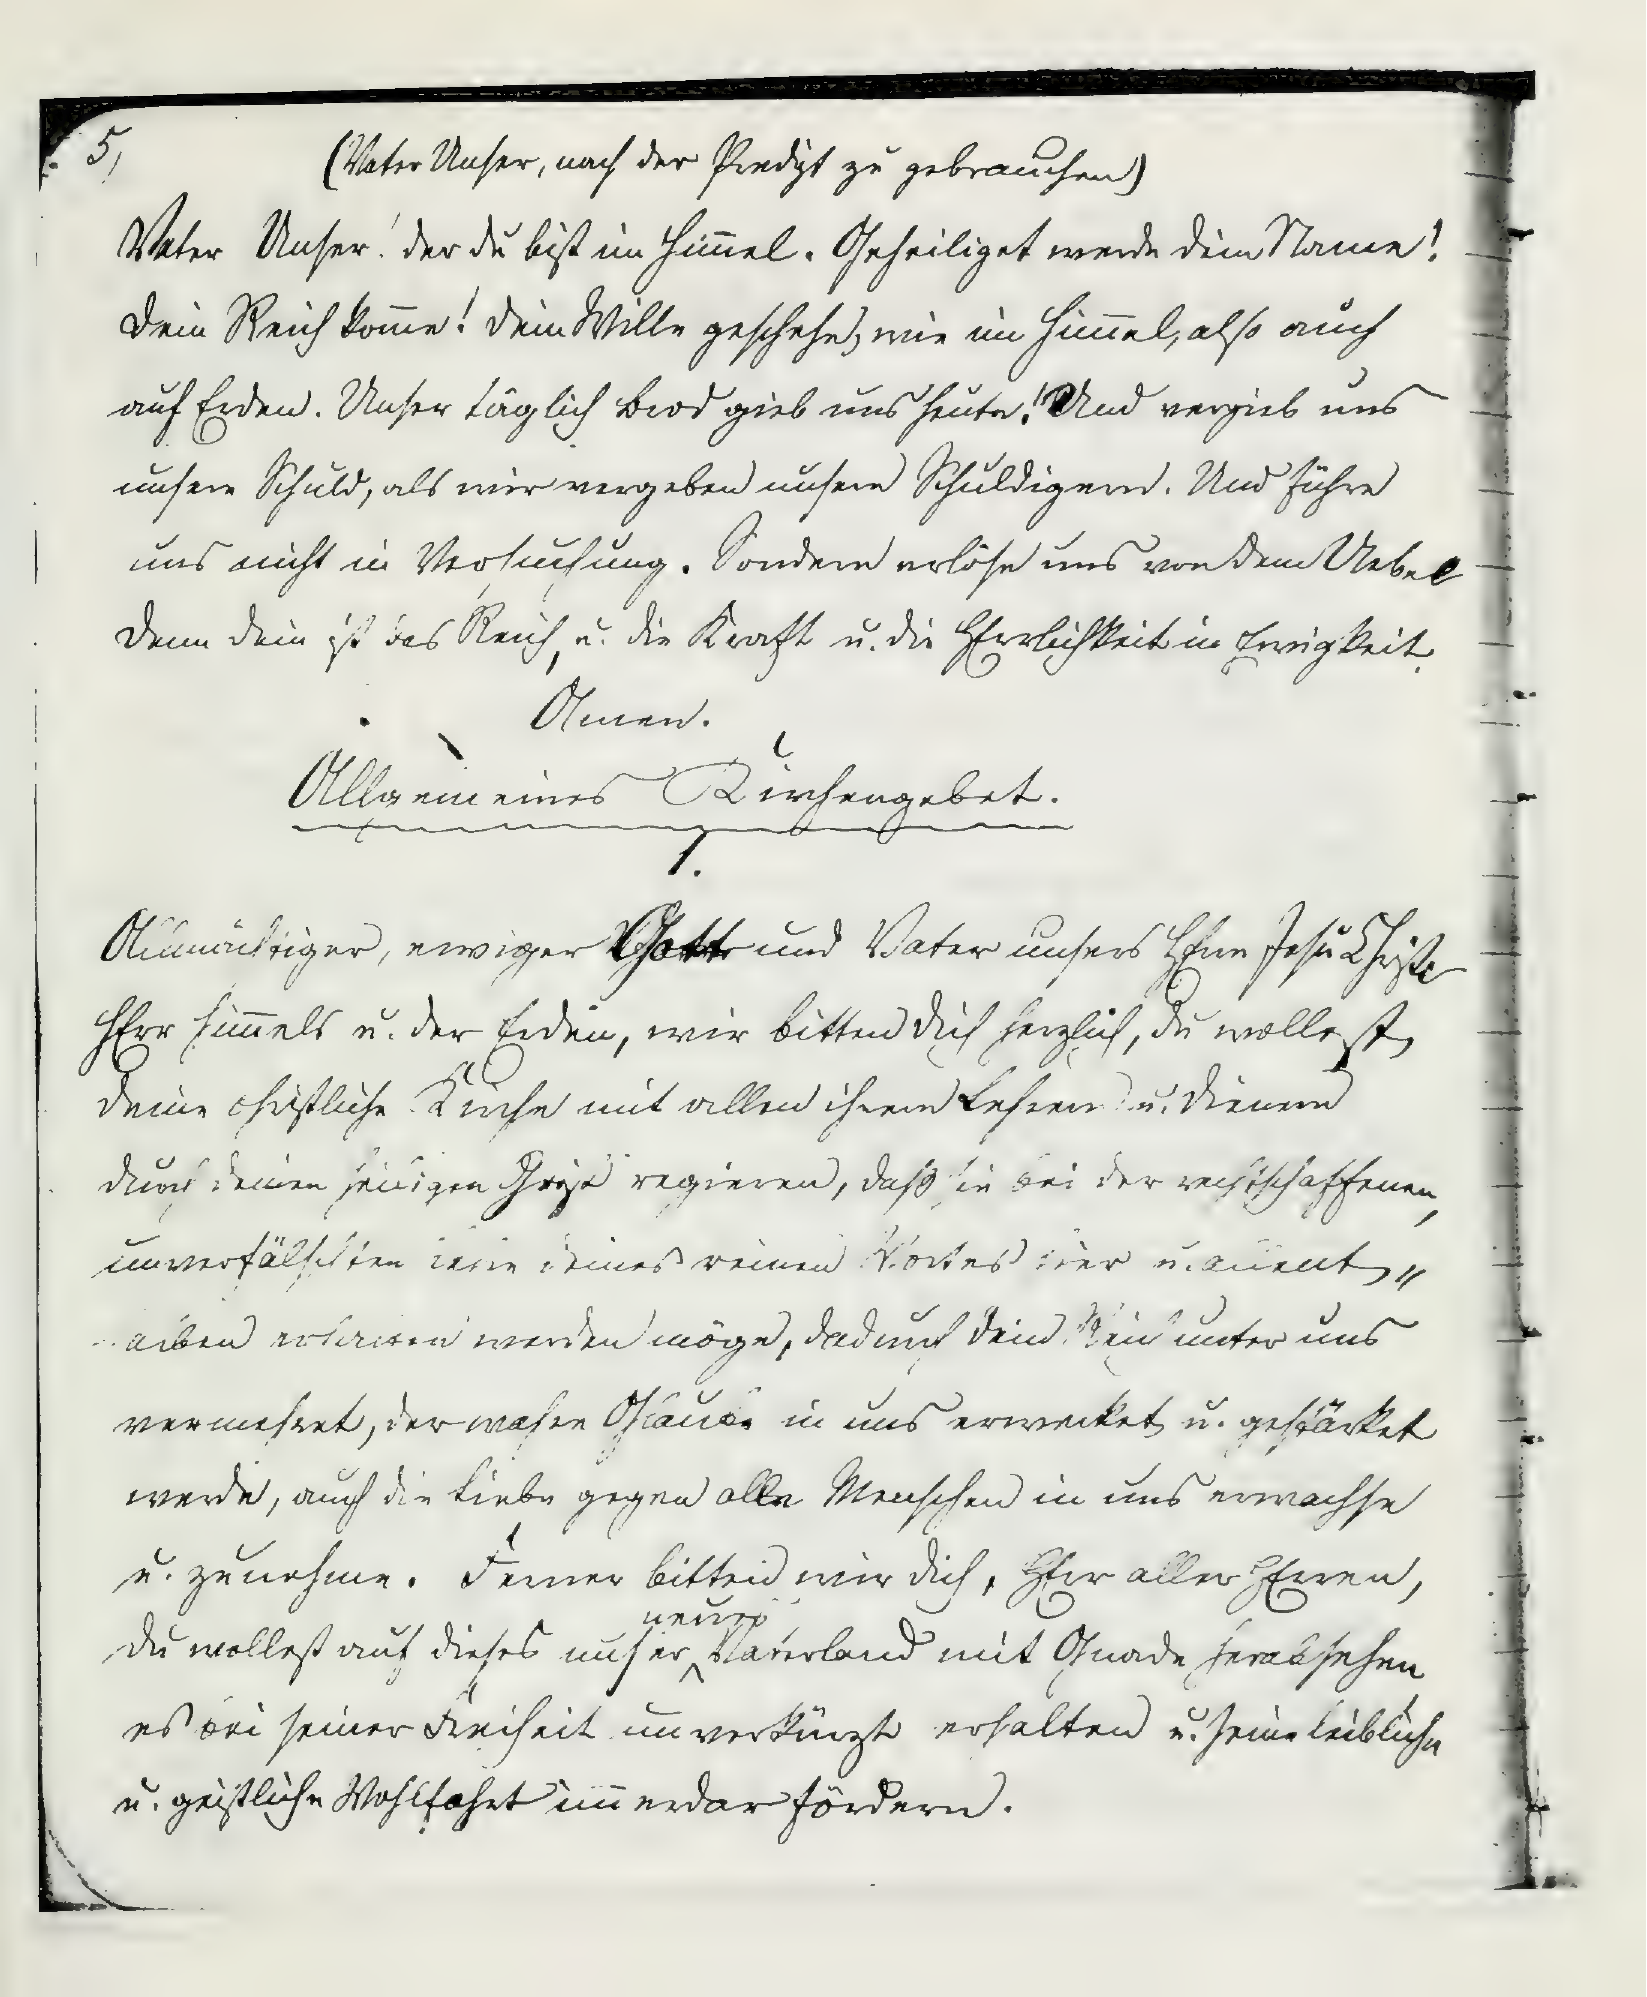 5,
(Vater Unser, nach der Predigt zu gebrauchen)
Vater Unser! der du bist im Himmel. Geheiliget werde dein Name!
Dein Reich komme! Dein Wille geschehe, wie im Himmel, also auch
auf Erden. Unser täglich Brod gieb uns heute! Und vergieb uns
unsere Schuld, als wir vergeben unsern Schuldigern. Und führe
uns nicht in Versuchung. Sondern erlöse uns von dem Uebel
Denn dein ist das Reich, u. die Kraft u. die HErrlichkeit in Ewigkeit.
Amen.
Allgemeines Kirchengebet.
1.
Allmächtiger, ewiger Gott und Vater unsers HErrn Jesu Christi
HErr Himmels u. der Erden, wir bitten dich herzlich, du wollest,
deine christliche Kirche mit allen ihren Lehrern u. Dienern
durch deinen heiligen Geist regieren, daß sie bei der rechtschaffenen,
unverfälschten Lehre deines reinen Wortes hier u. allent„
halben erhalten werden möge, dadurch dein Reich unter uns
vermehret, der wahre Glaube in uns erwecket u. gestärket
werde, auch die Liebe gegen alle Menschen in uns erwachse
u. zunehme. Ferner bitten wir dich, HErr aller HErren,
du wollest auf dieses unser neues Vaterland mit Gnade herabsehen
es bei seiner Freiheit unverkürzt erhalten u. seine leibliche
u. geistliche Wohlfahrt immerdar fördern.